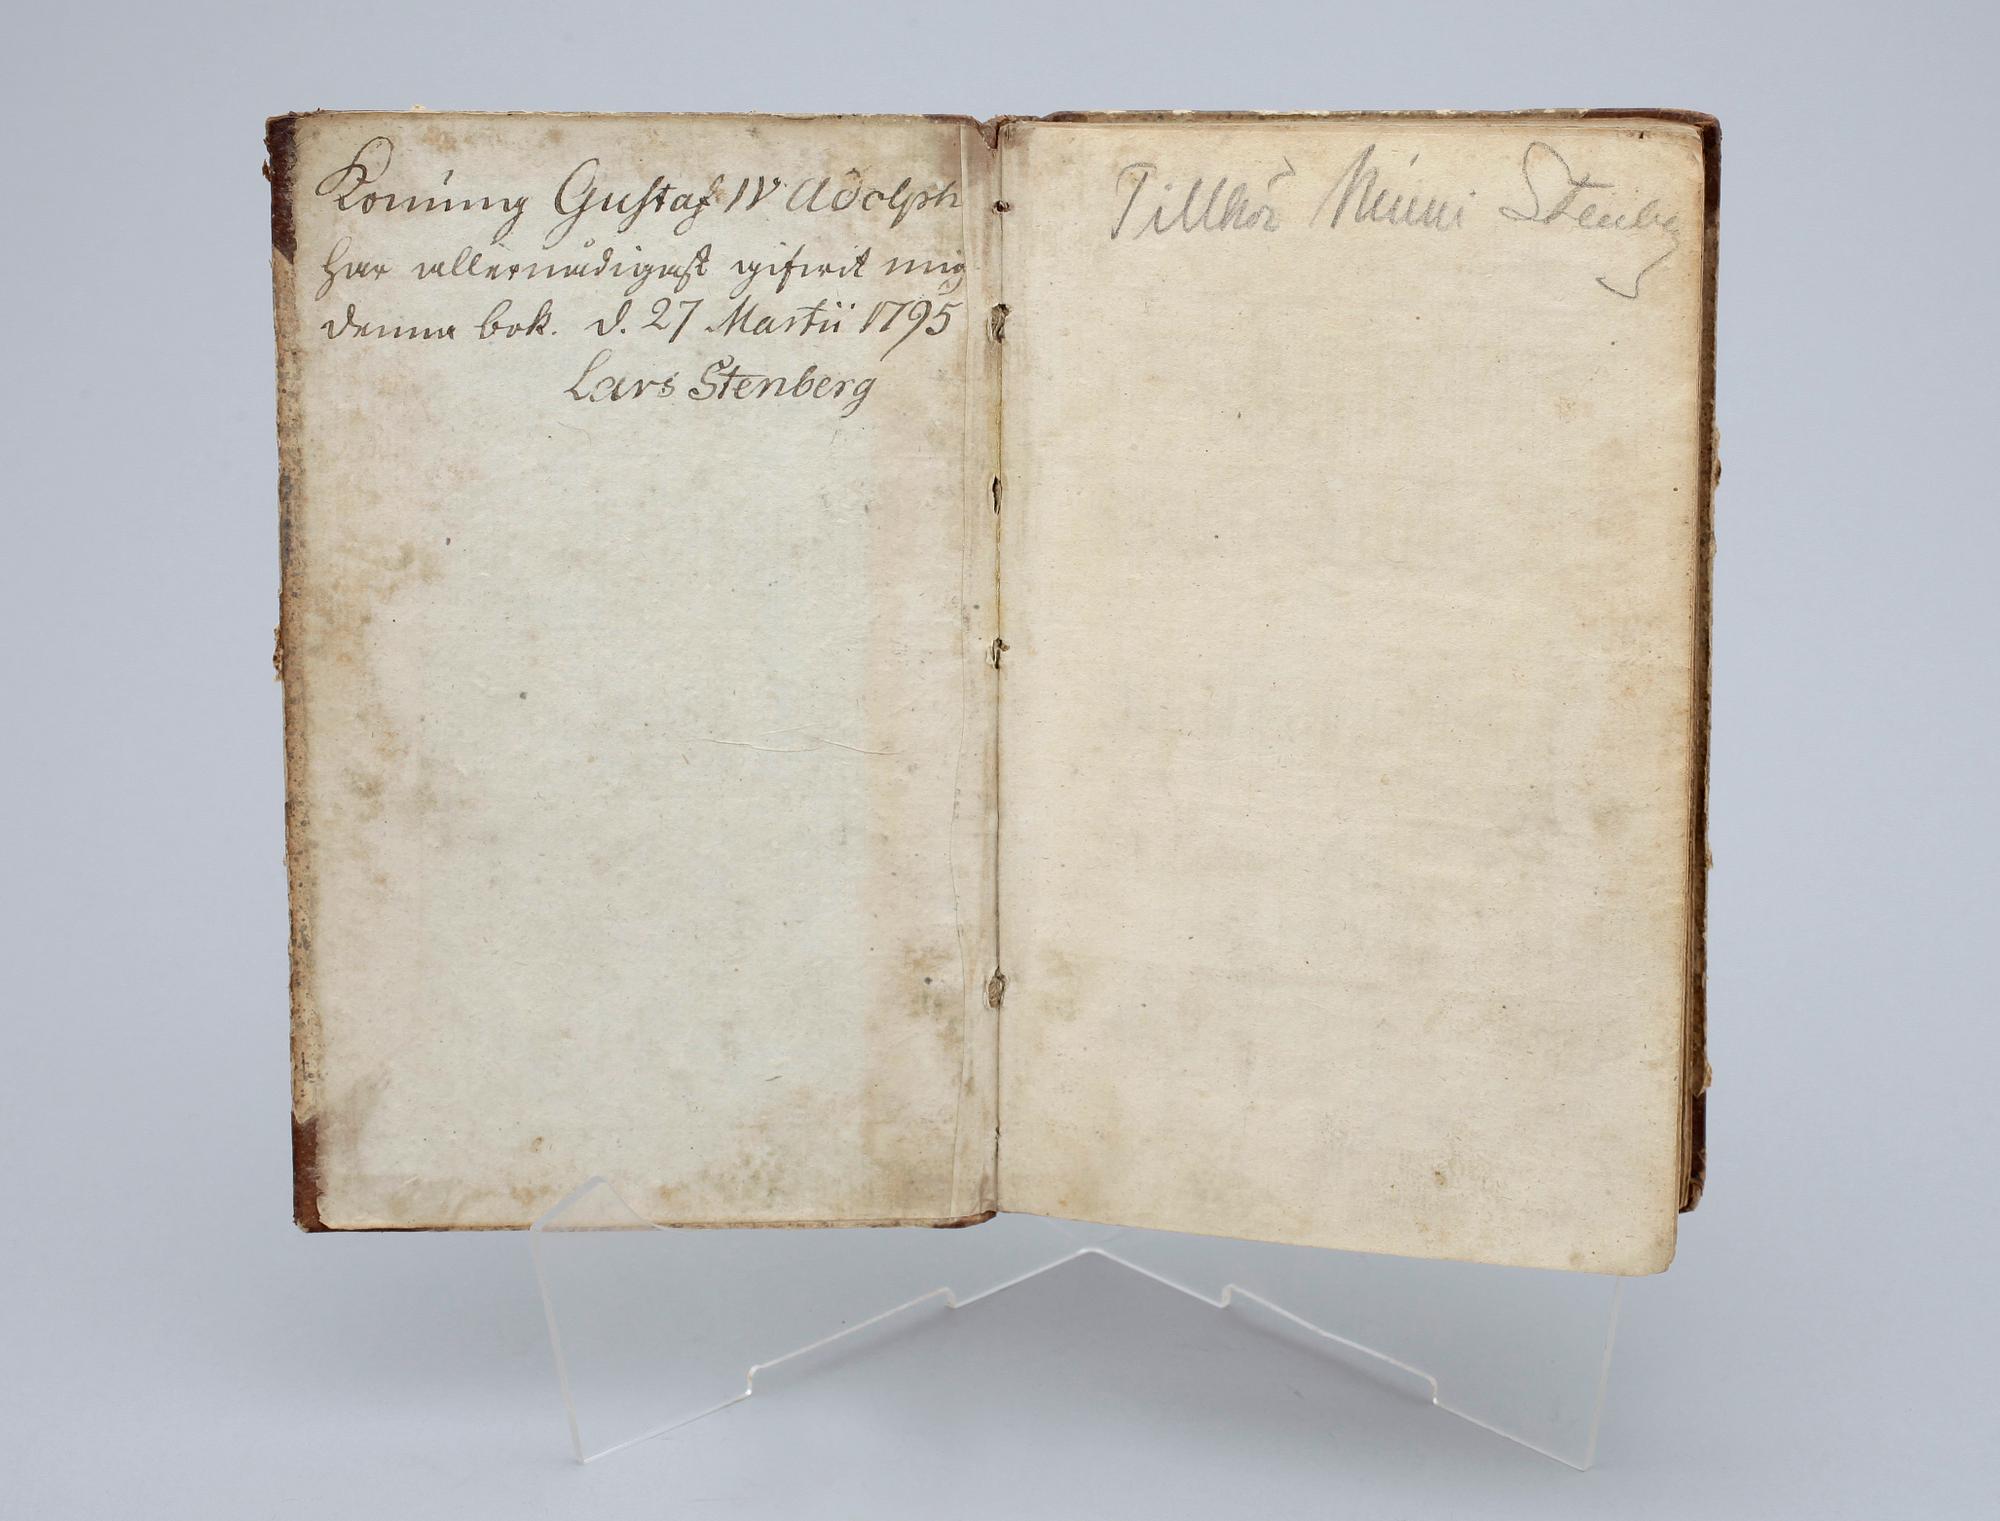 Konung Gustaf IV Adolph
har allernådigast gifwit mig
denna bok. d. 27 Martii 1795
Lars Stenberg
Tillhör Ninni Stenberg